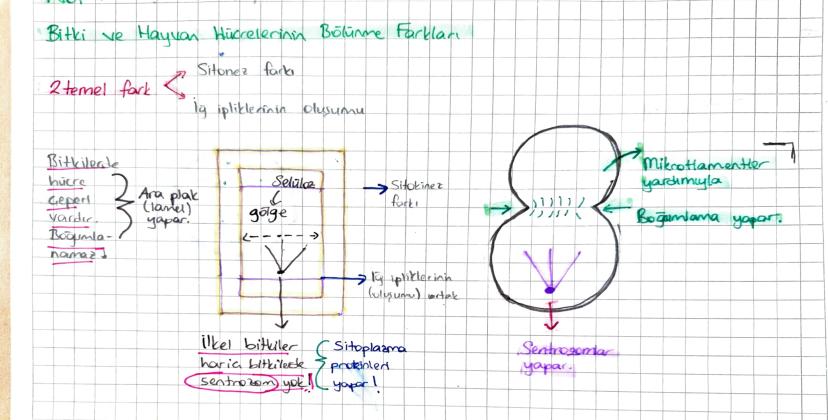 Bitki ve Hayvan Hücrelerinin Bölünme Farkları
2 temel fark
Sitonez farkı
İğ ipliklerinin oluşumu
Bitkilerde
hücre
çeperi
vardır.
Boğumla-
namaz
Ara plak
(lamel)
yapar.
Selüloz
gölge
Sitokinez
farkı
İğ ipliklerinin
(oluşumu) ortak
İlkel bitkiler
hariç bitkilerde
sentrozom yok!
Sitoplazma
proteinleri
yapar!
Mikroflamentler
yardımıyla
Boğumlama yapar.
Sentrozomlar
yapar.